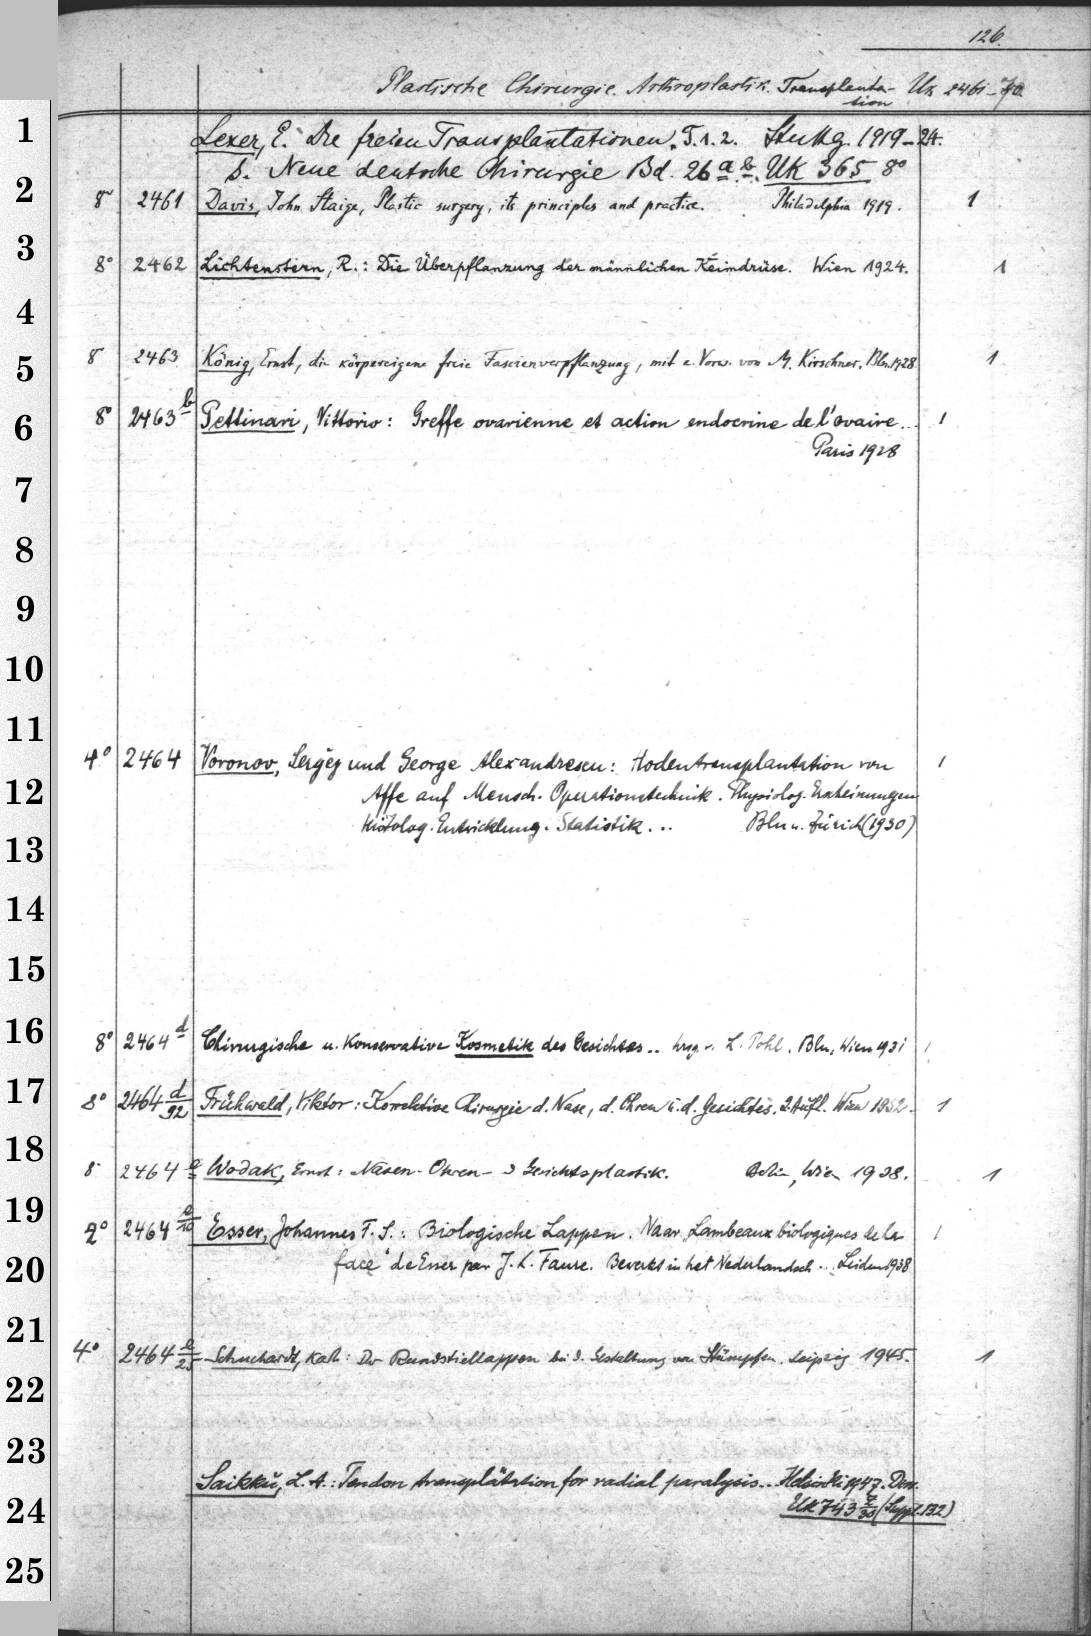 126.
Plastische Chirurgie. Arthroplastik. Transplanta- Uk 2461-70
tion
1 Lexer, E. Die freien Transplantationen. T.1.2. Stuttg. 1919-24.
2 s. Neue deutsche Chirurgie Bd. 26 a.b. Uk 365 8°
8° 2461 Davis, John Staige, Plastic surgery, its principles and practice. Philadelphia 1919. 1
3 8° 2462 Lichtenstern, R.: Die Überpflanzung der männlichen Keimdrüse. Wien 1924. 1
4
5 8° 2463 König, Ernst, die körpereigene freie Fascienverpflanzung, mit e. Vorw. von M. Kirschner. Bln. 1928 1
6 8° 2463 b Pettinari, Vittorio: Greffe ovarienne et action endocrine de l'ovaire... 1
Paris 1928
7
8
9
10
11
4° 2464 Voronov, Sergěj und George Alexandrescu: Hodentransplantation von 1
12 Affe auf Mensch. Operationstechnik. Physiolog. Erscheinungen
Histolog. Entwicklung. Statistik... Bln u. Zürich (1930)
13
14
15
16 8° 2464 d Chirurgische u. Konservative Kosmetik des Gesichtes.. hrsg. v. L. Pohl. Bln, Wien 1931 1
17 8° 2464 d/92 Frühwald, Viktor: Korrektive Chirurgie d. Nase, d. Ohren u. d. Gesichtes. 2. Aufl. Wien 1952. 1
18 8° 2464 e Wodak, Ernst: Nasen- Ohren- Gesichtsplastik. Berlin, Wien 1938. 1
19 2° 2464 e/10 Esser, Johannes F. S.: Biologische Lappen. Naar "Lambeaux biologiques de la 1
20 face" de Esser par J. L. Faure. Bewerkt in het Nederlandsch... Leiden 1938
21
4° 2464 e/25 Schuchardt, Karl: Der Rundstiellappen bei d. Gestaltung von Stümpfen. Leipzig 1945. 1
22
23
Saikku, L. A.: Tendon transplantation for radial paralysis.. Helsinki 1947. Diss.
24 Uk 743 /30 (Suppl. 132)
25